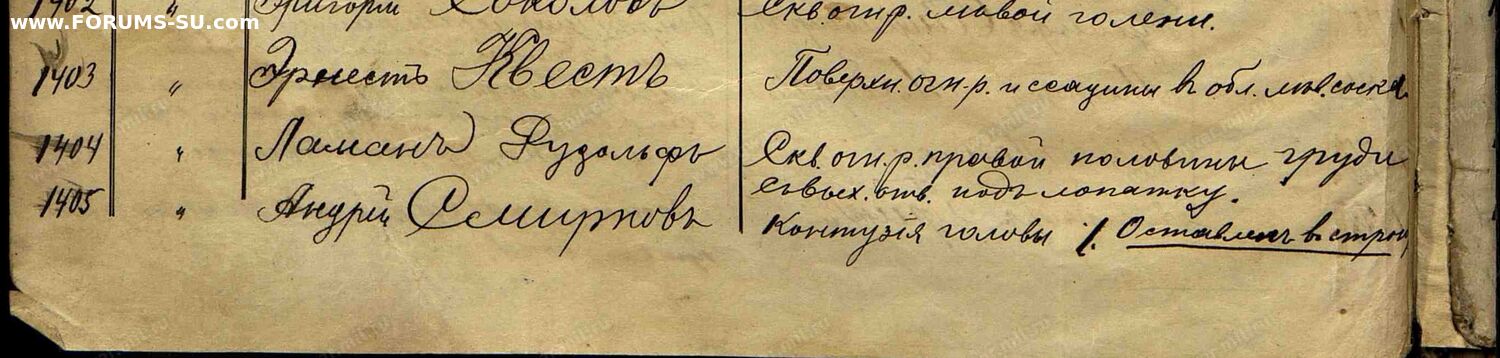 www.FORUMS-SU.com
1402 " Григорій Соколовъ Скв. огн. р. лѣвой голени.
1403 " Эрнестъ Квестъ Поверхн. огн. р. и ссадины въ обл. лѣв. соска
1404 " Ламанъ Рудольфъ Скв. огн. р. правой половины груди
съ вых. отв. подъ лопатку.
1405 " Андрей Смирновъ Контузія головы /. Оставленъ въ строю